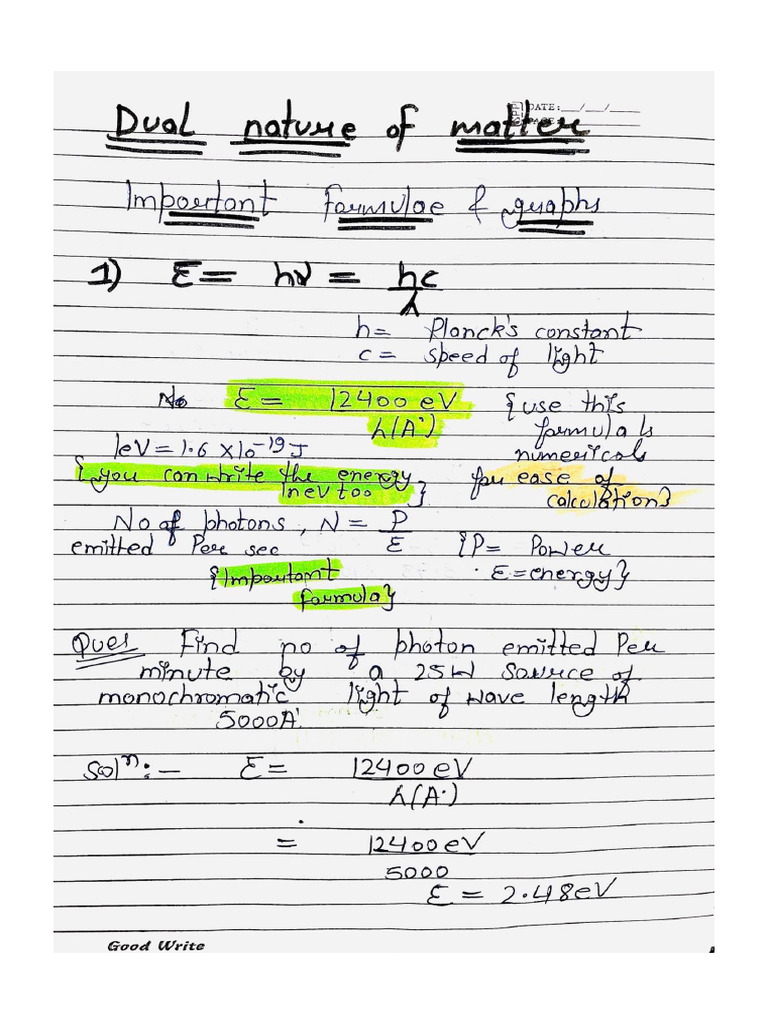 DATE: __/__/____
PAGE:
Dual nature of matter
Important formulae & graphs
1) E = hν = hc/λ
h = Planck's constant
c = speed of light
No E = 12400 eV/λ(A°) {use this
formula is
1eV = 1.6 X10⁻¹⁹ J
numericals
{you can write the energy for ease of
in ev too} calculation}
No of photons, N = P/E
emitted Per sec {P = Power
{Important E = energy}
formula}
Ques Find no of photon emitted Per
minute by a 25W source of
monochromatic light of wave length
5000A°.
solⁿ:- E = 12400 eV/λ(A°)
= 12400 eV/5000
E = 2.48eV
Good Write